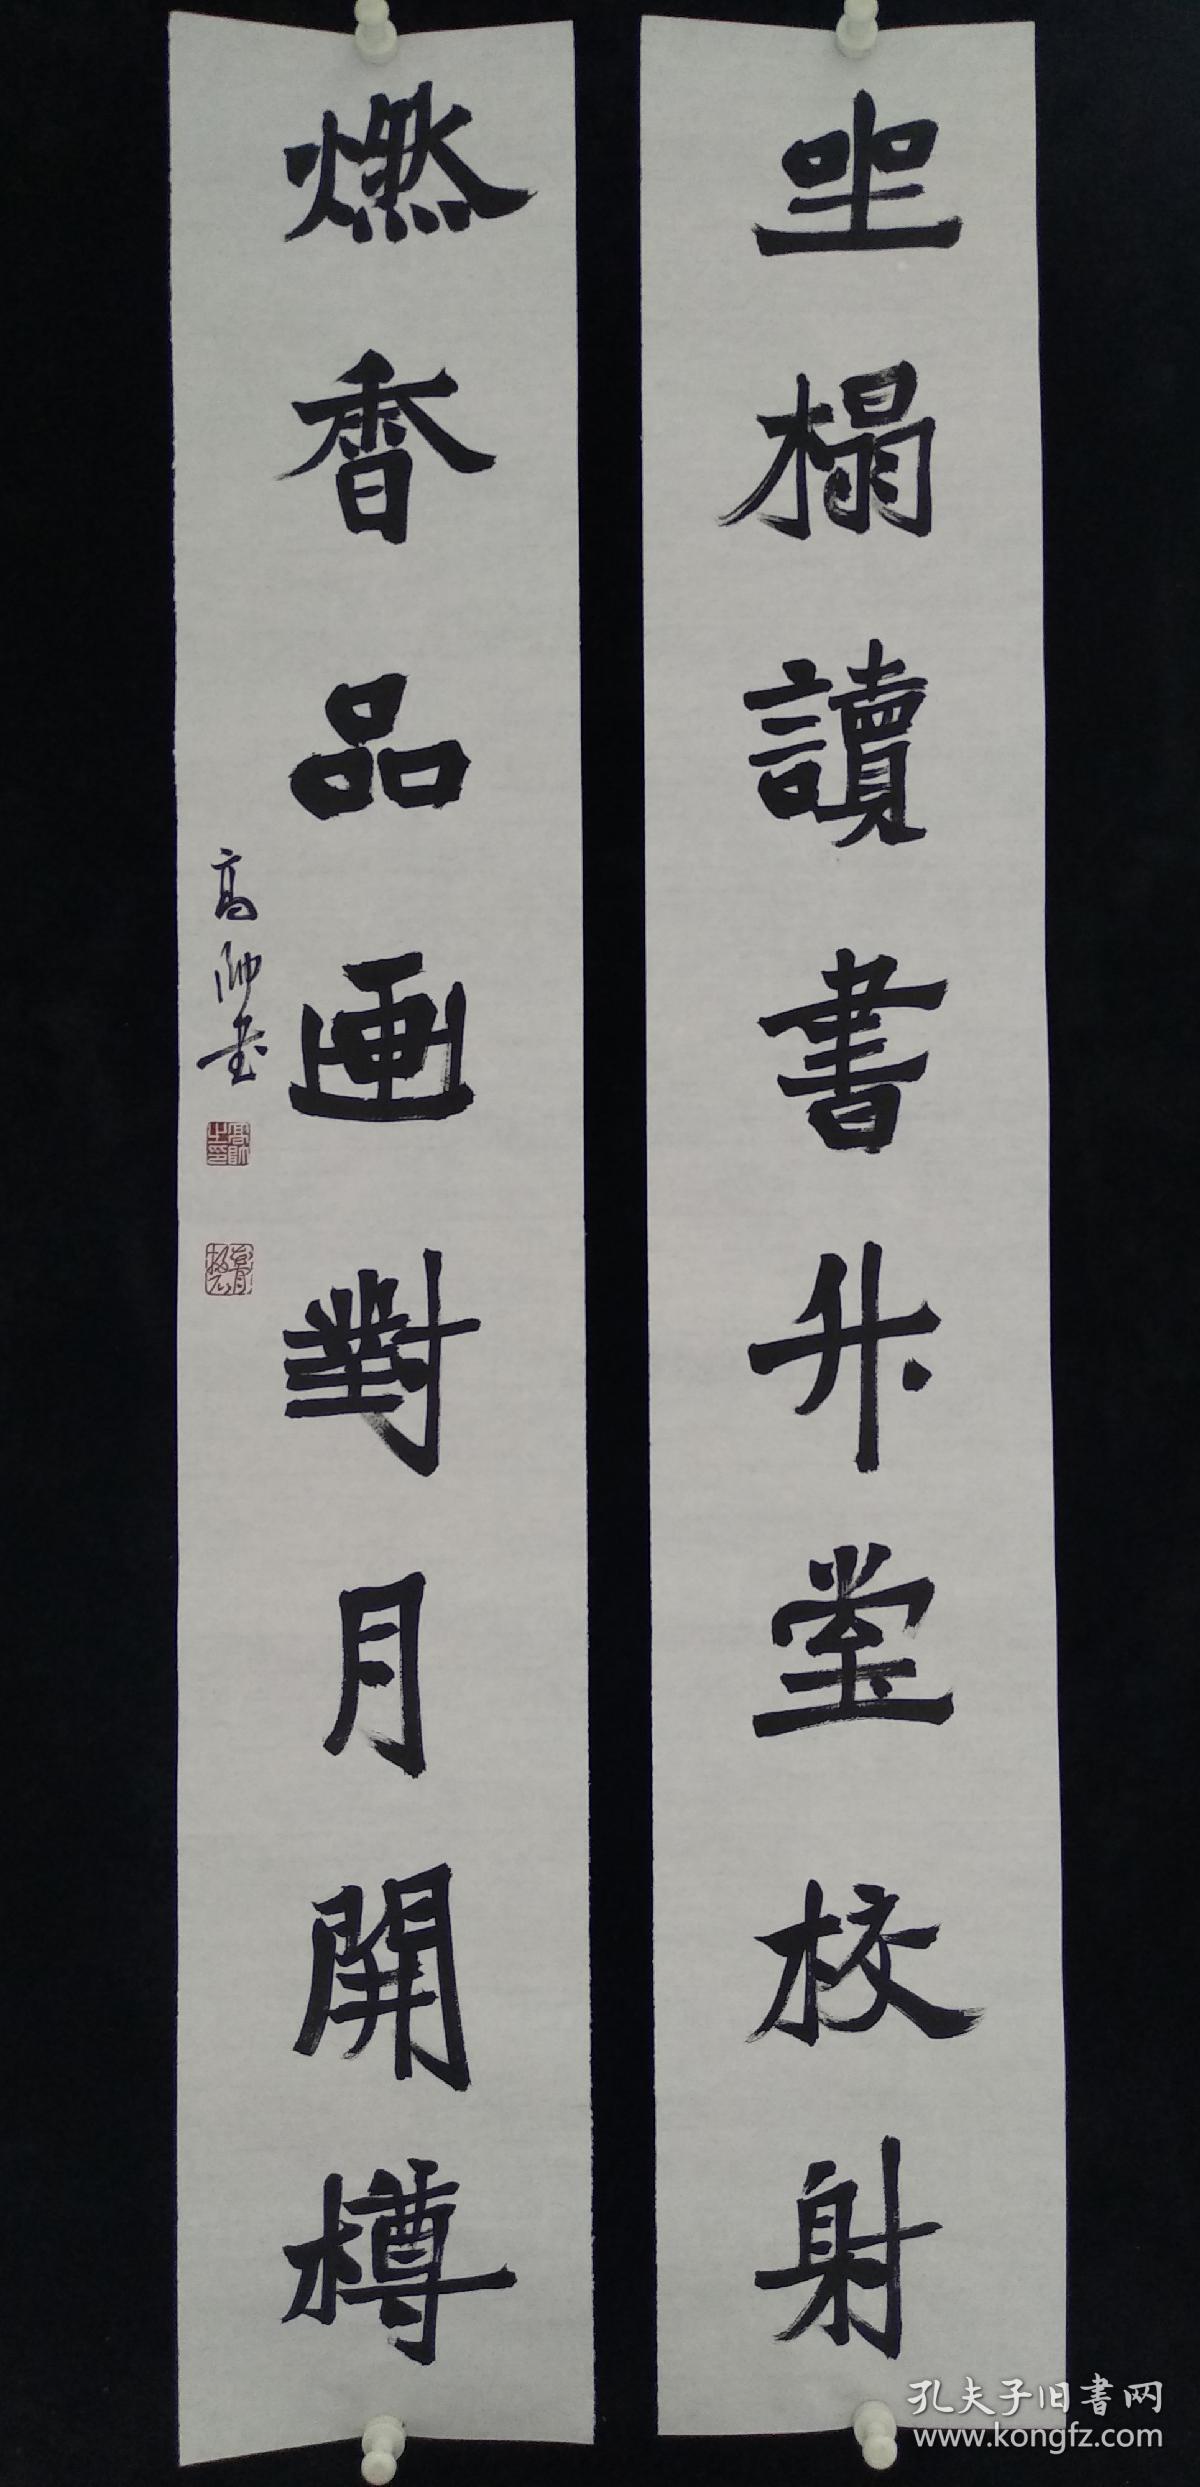 坐榻讀書升堂校射
燃香品画對月開樽
高帅书
孔夫子旧書网
www.kongfz.com